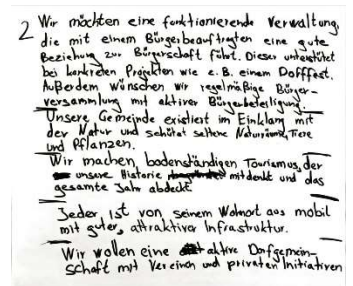 2 Wir möchten eine funktionierende Verwaltung,
die mit einem Bürgerbeauftragten eine gute
Beziehung zur Bürgerschaft führt. Dieser unterstützt
bei konkreten Projekten wie z.B. einem Dorffest.
Außerdem wünschen wir regelmäßige Bürger-
versammlung mit aktiver Bürgerbeteiligung.
Unsere Gemeinde existiert im Einklang mit
der Natur und schützt seltene Naturräume, Tiere
und Pflanzen.
Wir machen bodenständigen Tourismus, der
unsere Historie mitdenkt und das
gesamte Jahr abdeckt.
Jeder ist von seinem Wohnort aus mobil
mit guter, attraktiver Infrastruktur.
Wir wollen eine aktive Dorfgemein-
schaft mit Vereinen und privaten Initiativen